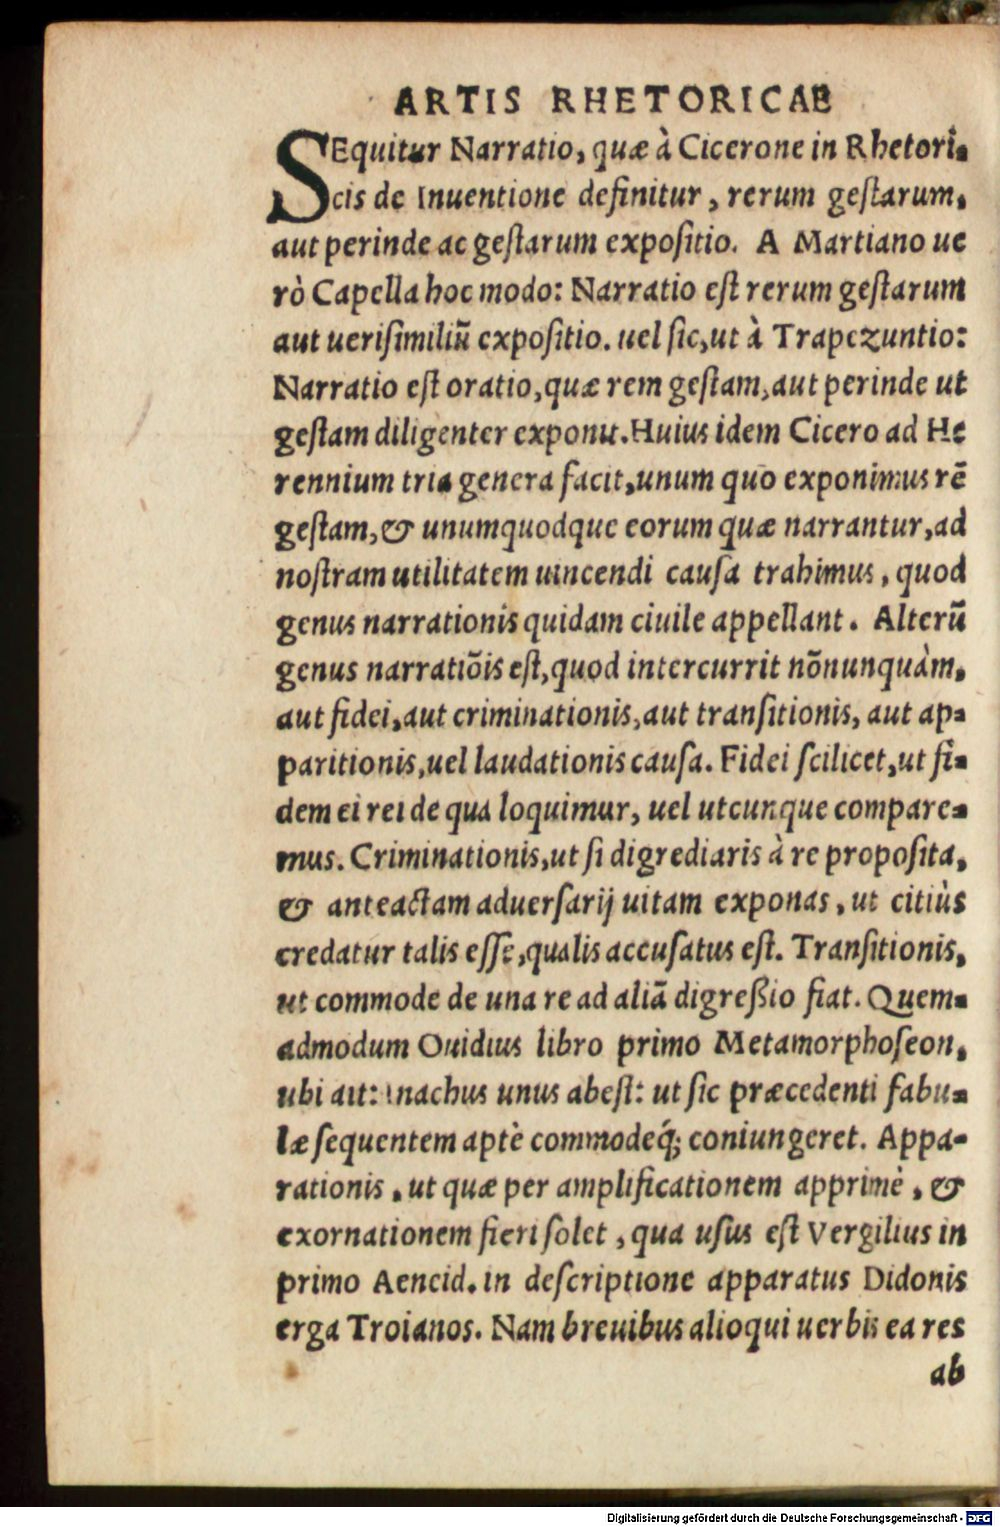 ARTIS RHETORICAE
SEquitur Narratio, quæ à Cicerone in Rhetori-
cis de Inuentione definitur, rerum gestarum,
aut perinde ac gestarum expositio. A Martiano ue
rò Capella hoc modo: Narratio est rerum gestarum
aut uerisimiliũ expositio. uel sic, ut à Trapezuntio:
Narratio est oratio, quæ rem gestam, aut perinde ut
gestam diligenter exponit. Huius idem Cicero ad He
rennium tria genera facit, unum quo exponimus rẽ
gestam, & unumquodque eorum quæ narrantur, ad
nostram utilitatem uincendi causa trahimus, quod
genus narrationis quidam ciuile appellant. Alterũ
genus narratiõis est, quod intercurrit nõnunquàm,
aut fidei, aut criminationis, aut transitionis, aut ap-
paritionis, uel laudationis causa. Fidei scilicet, ut fi-
dem ei rei de qua loquimur, uel utcunque compare-
mus. Criminationis, ut si digrediaris à re proposita,
& anteactam aduersarij uitam exponas, ut citiùs
credatur talis esse, qualis accusatus est. Transitionis,
ut commode de una re ad aliã digreßio fiat. Quem-
admodum Ouidius libro primo Metamorphoseon,
ubi ait: Inachus unus abest: ut sic præcedenti fabu-
læ sequentem aptè commodeq́; coniungeret. Appa-
rationis, ut quæ per amplificationem apprimè, &
exornationem fieri solet, qua usus est Vergilius in
primo Aeneid. in descriptione apparatus Didonis
erga Troianos. Nam breuibus alioqui uerbis ea res
ab
Digitalisierung gefördert durch die Deutsche Forschungsgemeinschaft - DFG